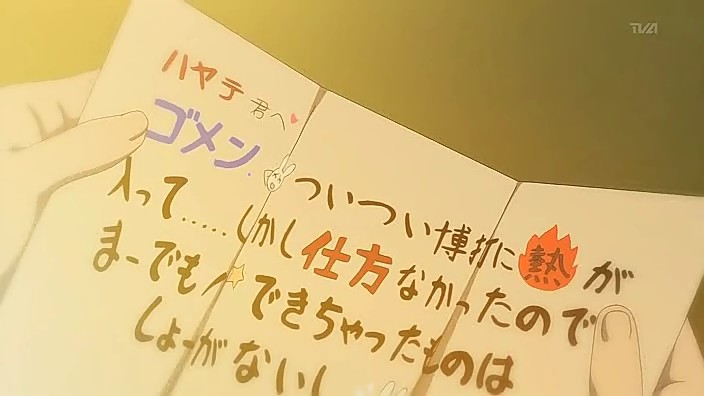 TVA
ハヤテ君へ♥
ゴメン.
ついつい博打に熱が
入って……しかし仕方なかったので
まーでも☆できちゃったものは
しょーがないし